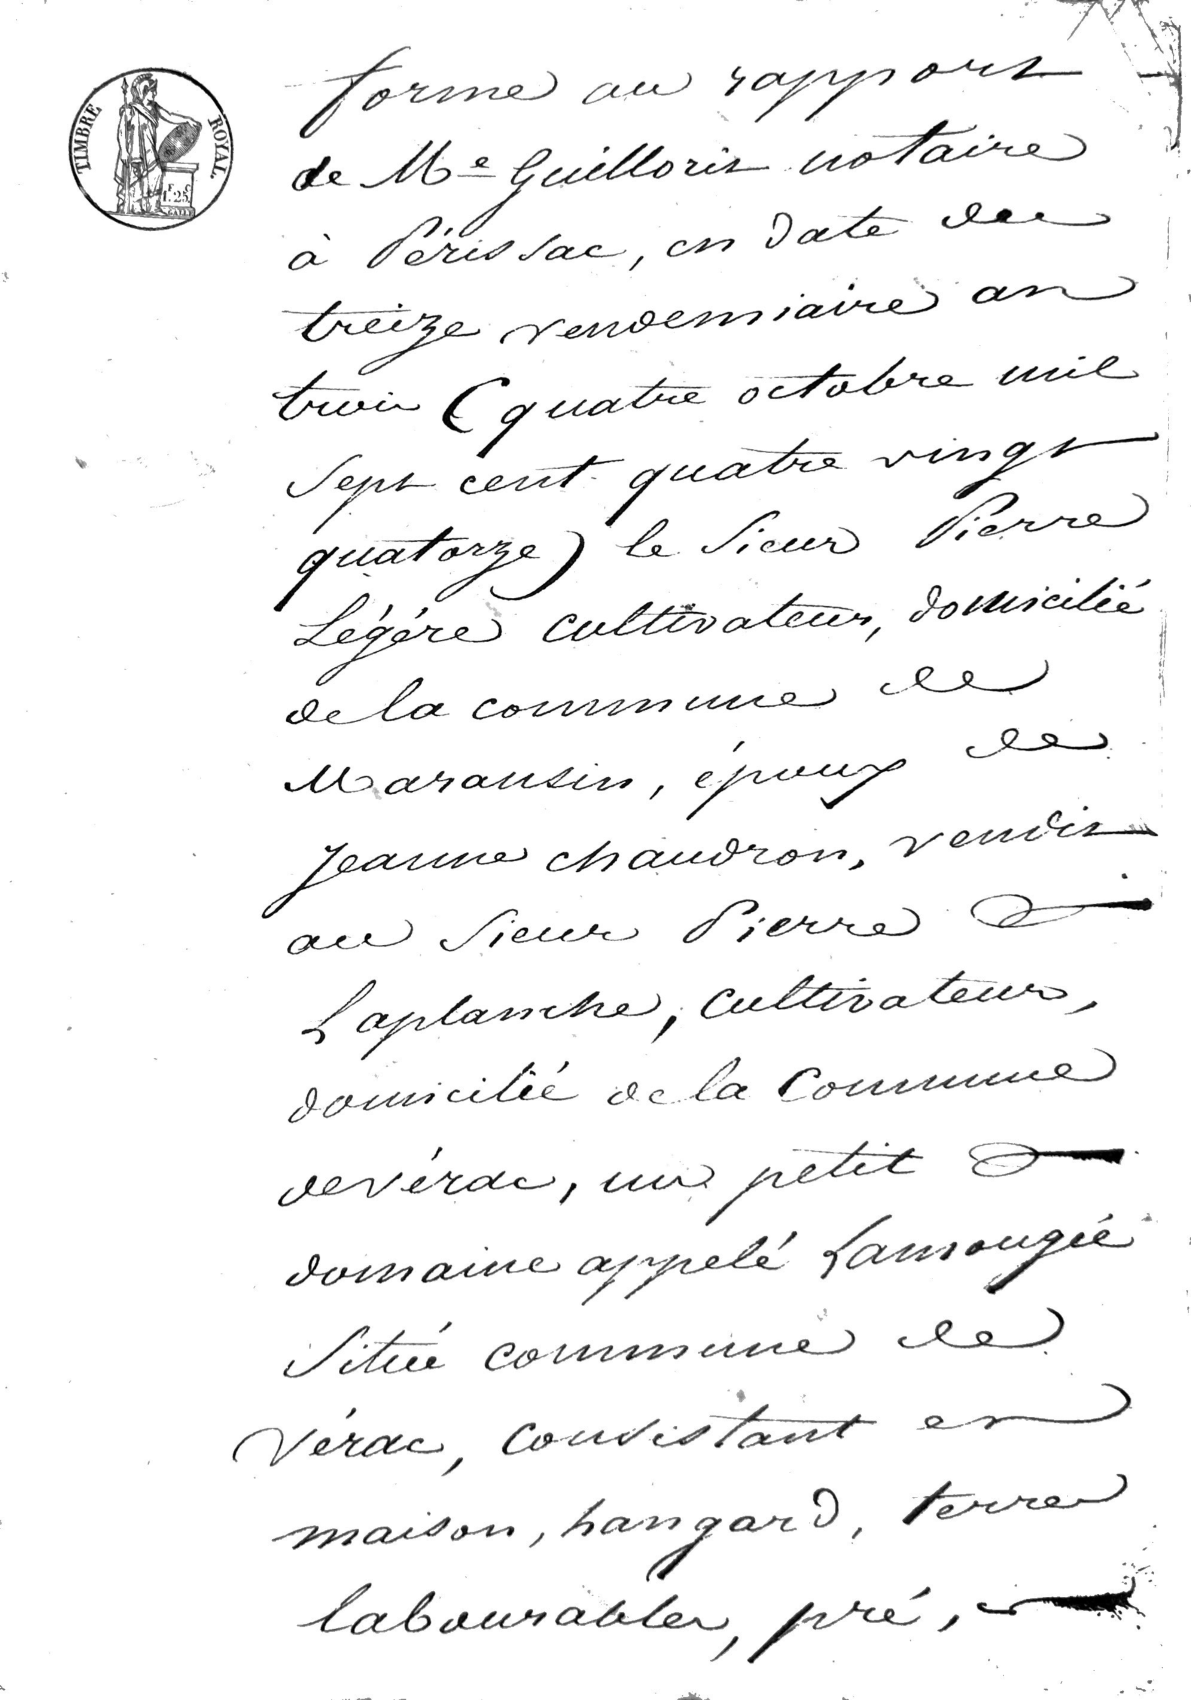 TIMBRE ROYAL.
F. C.
1. 25.
forme au rapport
de Me Guillorit notaire
à Périssac, en date du
treize vendemiaire an
trois (quatre octobre mil
sept cent quatre vingt
quatorze) le sieur Pierre
Légére cultivateur, domicilié
de la commune de
Maransin, époux de
Jeanne chaudron, vendit
au sieur Pierre
Laplanche, cultivateur,
domicilié de la Commune
de vérac, un petit
domaine appelé Lamougié
situé commune de
vérac, consistant en
maison, hangard, terres
labourables, pré,